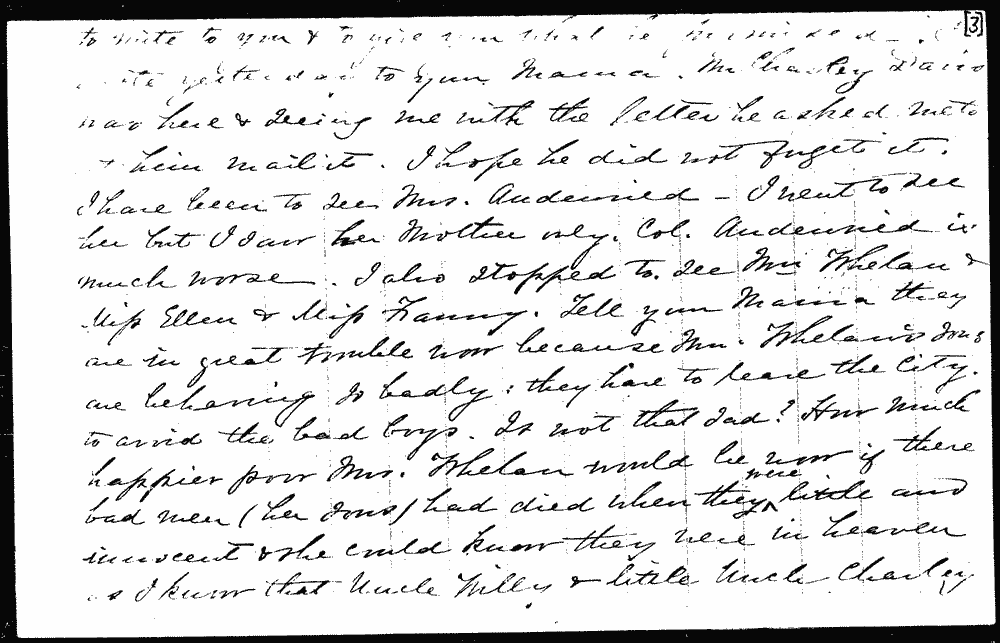 [3]
to write to you & to give you what he
yesterday to your Mama. Mr Charley Davis
was here & seeing me with the letter he asked me to
him mail it. I hope he did not forget it.
I have been to see Mrs. Audenried – I went to see
her but I saw her Mother only. Col. Audenried is
much worse. I also stopped to see Mrs Whelan &
Miss Ellen & Miss Fanny. Tell your Mama they
are in great trouble now because Mrs. Whelan's sons
are behaving so badly; they have to leave the City.
to avoid the bad boys. Is not that sad? How much
happier poor Mrs. Whelan would be now if there
bad men (her sons) had died when they were little and
innocent & she could know they were in heaven
as I know that Uncle Willy & little Uncle Charley